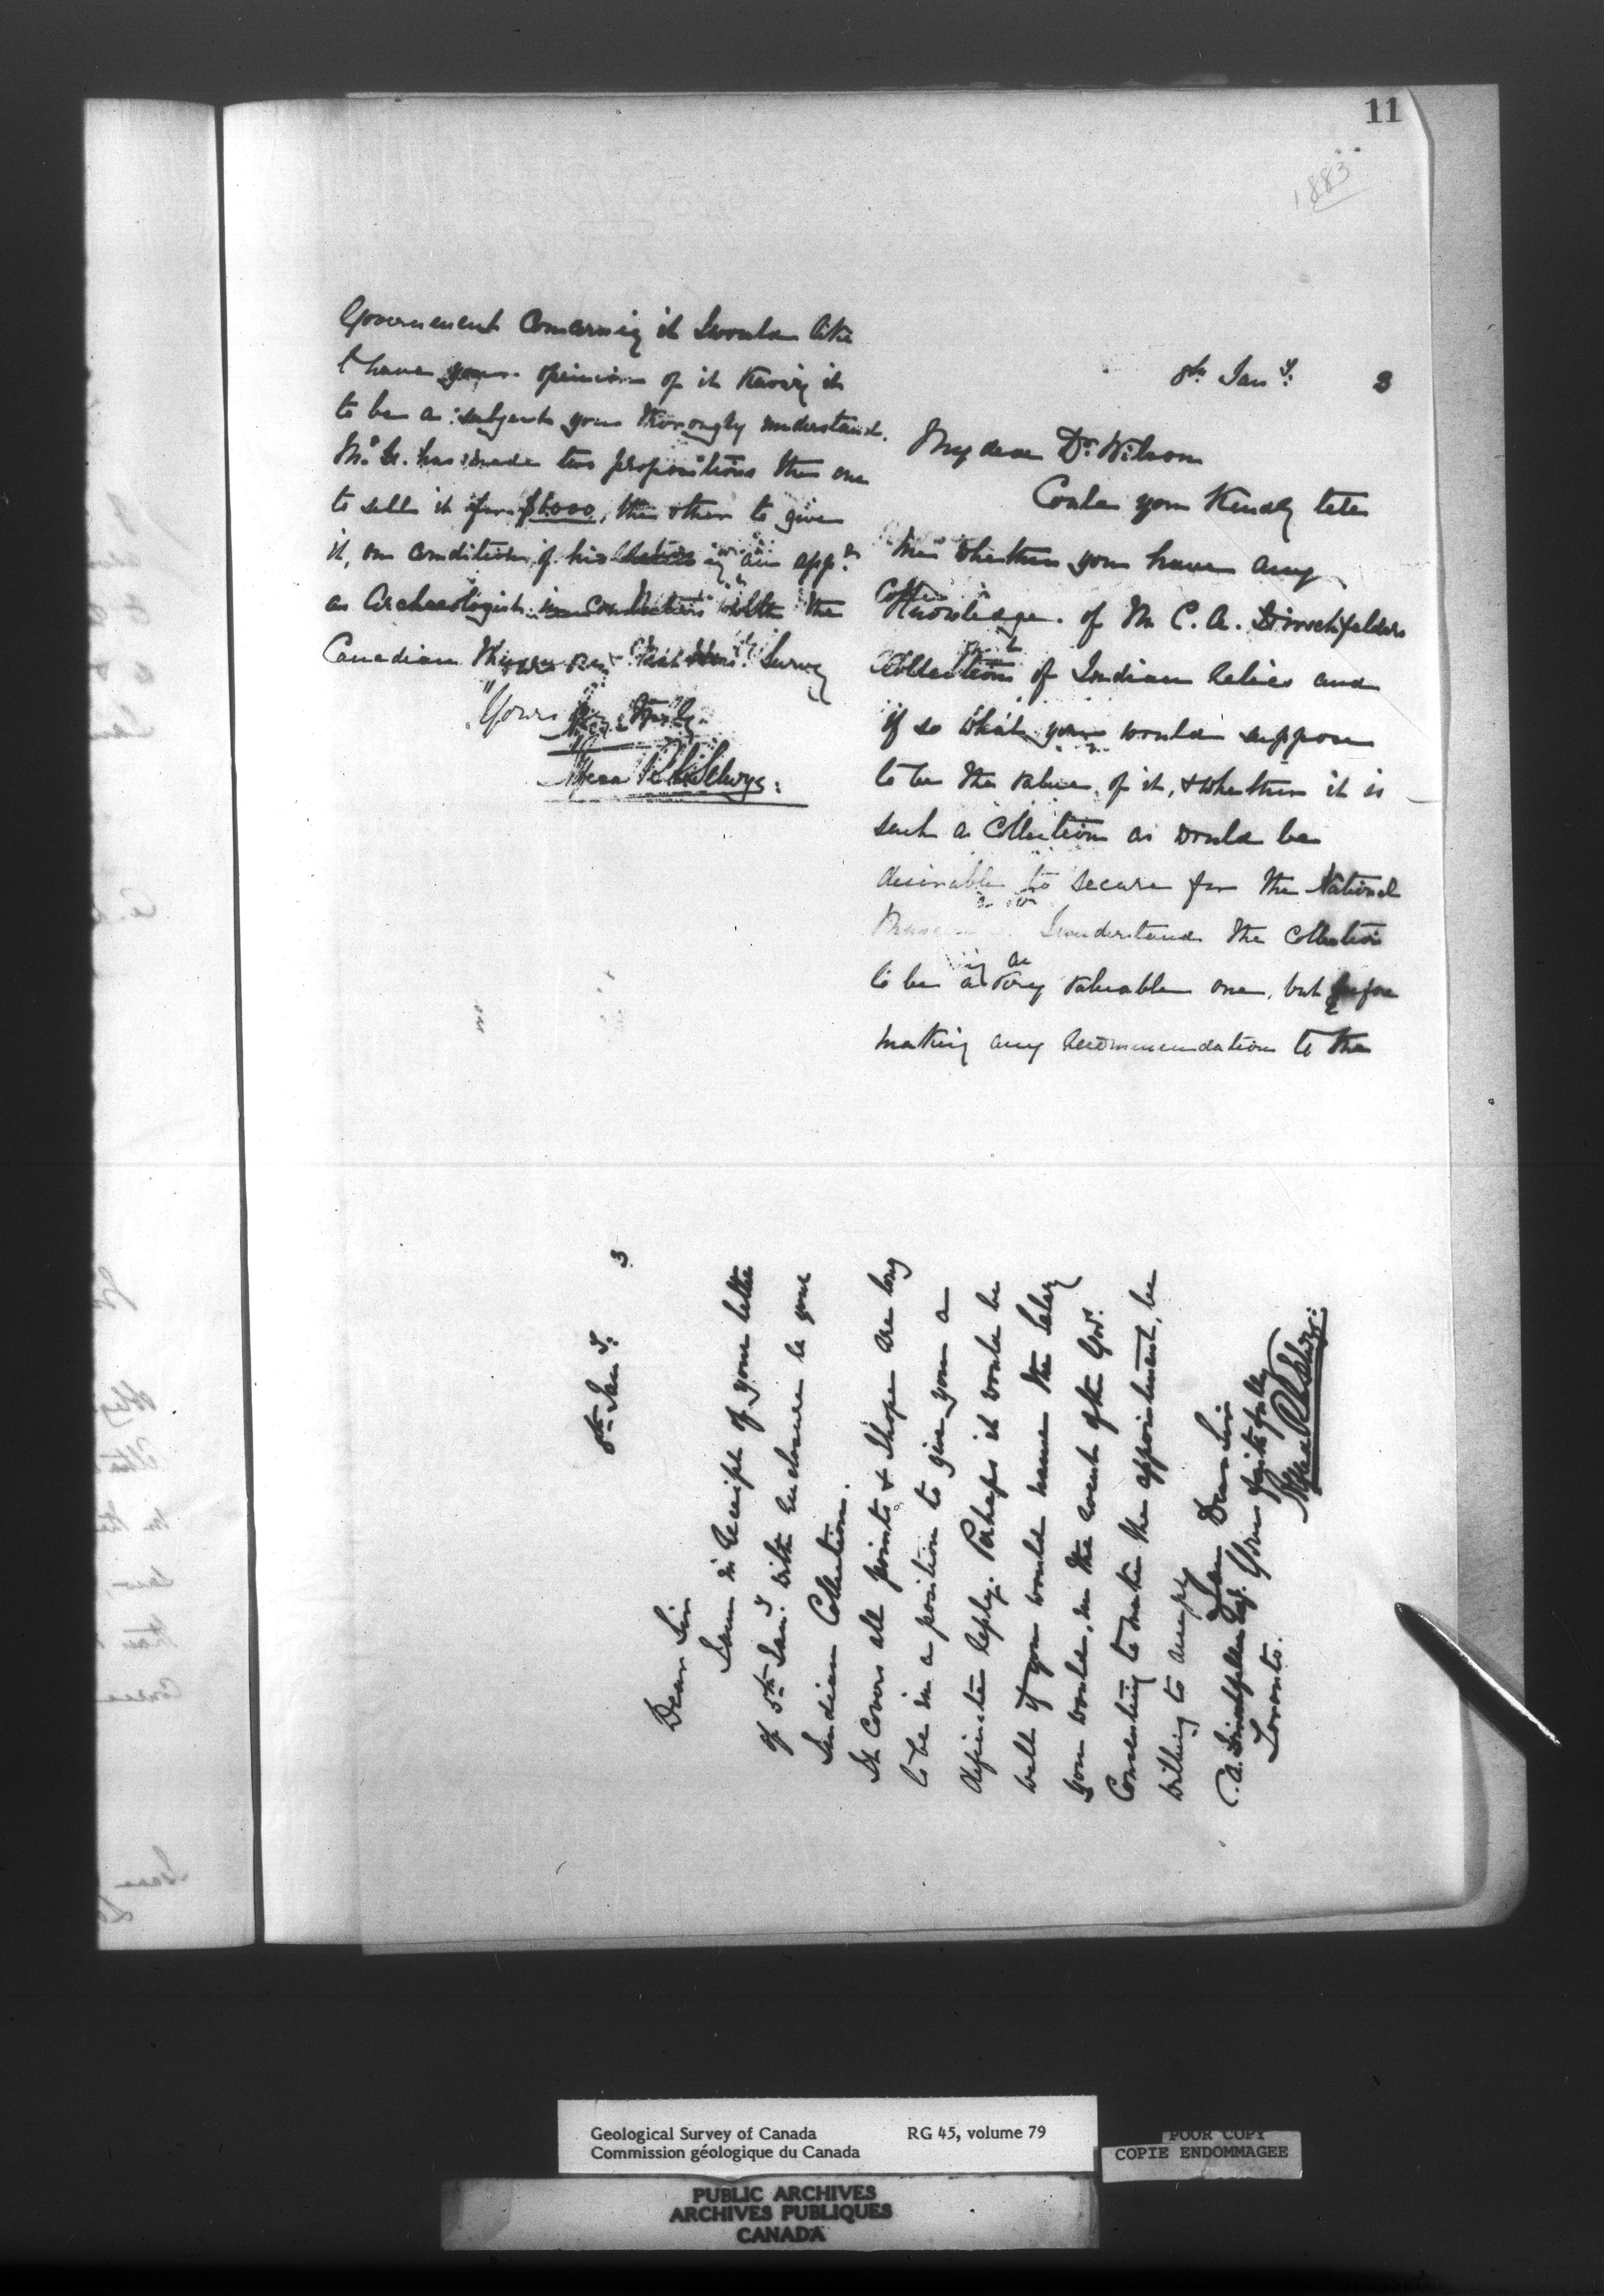 11
1883
8th Jany. 3
My dear Dr. Wilson
Could you Kindly tell
me whether you have any
Knowledge of Mr C. A. Hirschfelders
Collection of Indian Relics and
if so what you would suppose
to be the value of it, & whether it is
such a Collection as would be
desirable to secure for the National
I understand the Collection
to be a very valuable one, but before
making any recommendation to the
Government Concerning it I would like
to have your opinion of it knowing it
to be a subject you thoroughly understand.
Mr. H. has made two propositions the one
to sell it for the other to give
it, on condition of his app.
as Archaeologist in Connection with the
Canadian Survey
Yours Very Truly
Alfred R. C. Selwyn.
8th Jany. 3
Dear Sir
I am in receipt of your letter
of 5th Jany. with enclosure re your
Indian Collection.
It Covers all points & I hope ere long
to be in a position to give you a
definite reply. Perhaps it would be
well if you would name the salary
you would, in the event of the Govt.
Consenting to make the appointment, be
willing to accept
I am Dear Sir
Yours faithfully
Alfred R. C. Selwyn.
C. A. Hirschfelder Esq.
Toronto.
Geological Survey of Canada RG 45, volume 79
Commission géologique du Canada
POOR COPY
COPIE ENDOMMAGEE
PUBLIC ARCHIVES
ARCHIVES PUBLIQUES
CANADA